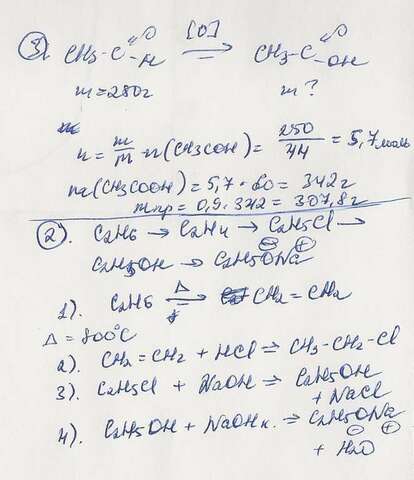 3). CH3-C(=O)-H [O] → CH3-C(=O)-OH
m=280г m?
n = m/m · n(CH3COH) = 250/44 = 5,7моль
m(CH3COOH) = 5,7 · 60 = 342г
mпр = 0,9 · 342 = 307,8г
2). C2H6 → C2H4 → C2H5Cl →
C2H5OH → C2H5O⊖Na⊕
1). C2H6 Δ⇒ CH2=CH2
Δ = 800°C
2). CH2=CH2 + HCl ⇒ CH3-CH2-Cl
3). C2H5Cl + NaOH ⇒ C2H5OH
+ NaCl
4). C2H5OH + NaOHк. ⇒ C2H5O⊖Na⊕
+ H2O